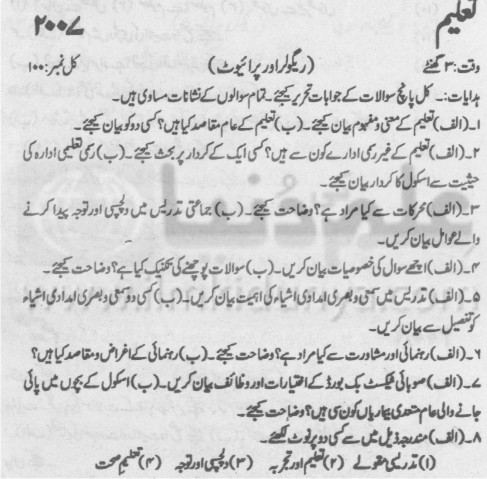 تعلیم
۲۰۰۷
وقت: ۳ گھنٹے (ریگولر اور پرائیوٹ) کل نمبر: ۱۰۰
ہدایات:۔ کل پانچ سوالات کے جوابات تحریر کیجئے۔ تمام سوالوں کے نشانات مساوی ہیں۔
۱۔ (الف) تعلیم کے معنی و مفہوم بیان کیجئے۔ (ب) تعلیم کے عام مقاصد کیا ہیں؟ کسی دو کو بیان کیجئے۔
۲۔ (الف) تعلیم کے غیر رسمی ادارے کون سے ہیں؟ کسی ایک کے کردار پر بحث کیجئے۔ (ب) رسمی تعلیمی ادارہ کی
حیثیت سے اسکول کا کردار بیان کیجئے۔
۳۔ (الف) محرکات سے کیا مراد ہے؟ وضاحت کیجئے۔ (ب) جماعتی تدریس میں دلچسپی اور توجہ پیدا کرنے
والے عوامل بیان کریں۔
۴۔ (الف) اچھے سوال کی خصوصیات بیان کریں۔ (ب) سوالات پوچھنے کی تکنیک کیا ہے؟ وضاحت کیجئے۔
۵۔ (الف) تدریس میں سمعی و بصری امدادی اشیاء کی اہمیت بیان کریں۔ (ب) کسی دو سمعی و بصری امدادی اشیاء
کو تفصیل سے بیان کریں۔
۶۔ (الف) رہنمائی اور مشاورت سے کیا مراد ہے؟ وضاحت کیجئے۔ (ب) رہنمائی کے اغراض و مقاصد کیا ہیں؟
۷۔ (الف) صوبائی ٹیکسٹ بک بورڈ کے اختیارات اور وظائف بیان کریں۔ (ب) اسکول کے بچوں میں پائی
جانے والی عام متعدی بیماریاں کون سی ہیں؟ وضاحت کیجئے۔
۸۔ (الف) مندرجہ ذیل میں سے کسی دو پر نوٹ لکھئے
(۱) تدریسی مقولے (۲) تعلیم اور تجربہ (۳) دلچسپی اور توجہ (۴) تعلیم صحت